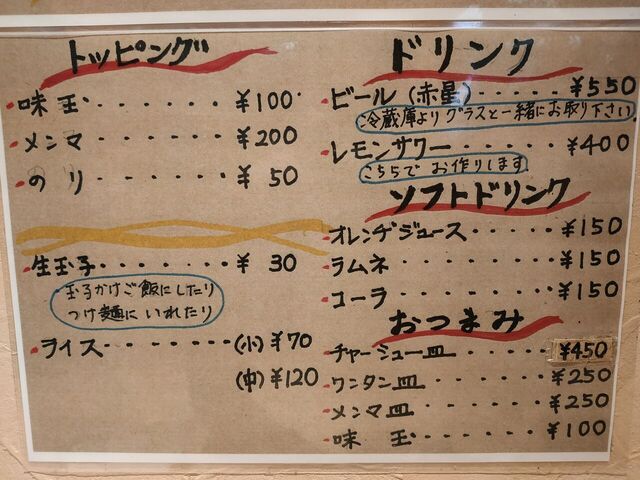 トッピング
味玉・・・・・・¥100
メンマ・・・・・¥200
のり・・・・・¥50
生玉子・・・・・¥30
玉子かけご飯にしたり
つけ麺にいれたり
ライス・・・・・(小)¥70
(中)¥120
ドリンク
ビール(赤星)・・・・・¥550
冷蔵庫よりグラスと一緒にお取り下さい
レモンサワー・・・・・¥400
こちらでお作りします
ソフトドリンク
オレンヂジュース・・・・¥150
ラムネ・・・・・・・¥150
コーラ・・・・・・・¥150
おつまみ
チャーシュー皿・・・・¥450
ワンタン皿・・・・・・¥250
メンマ皿・・・・・・¥250
味玉・・・・・・¥100